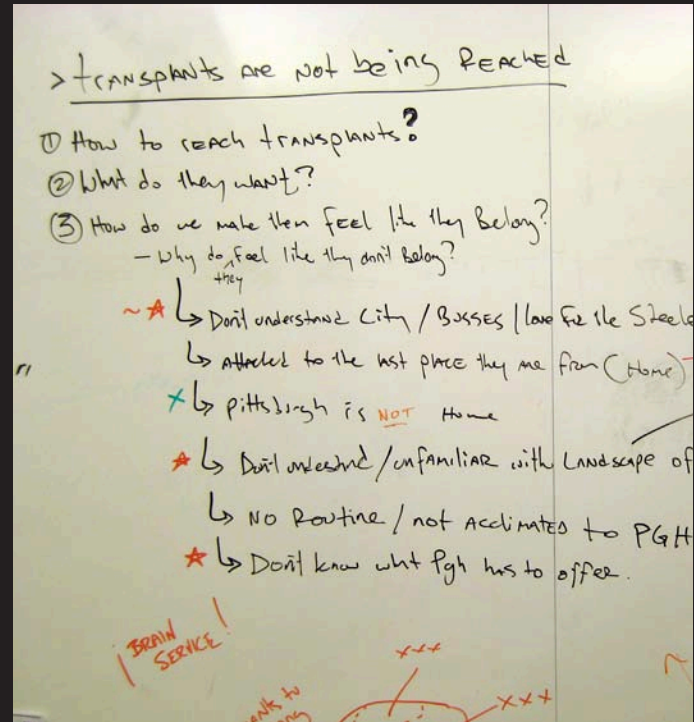 > TRANSPLANTS ARE NOT being REACHED
① How to REACH TRANSPLANTS?
② What do they WANT?
③ How do we make them FEEL like they Belong?
- Why do they feel like they don't Belong?
~ ☆ ↳ Don't understand City / Busses / love for the Steele
↳ Attached to the last place they are from (Home)
x ↳ Pittsburgh is NOT Home
☆ ↳ Don't understand / unfamiliar with LANDSCAPE of
↳ No Routine / not Acclimated to PGH
☆ ↳ Don't know what Pgh has to offer.
BRAIN
SERVICE!
xxx
xxx